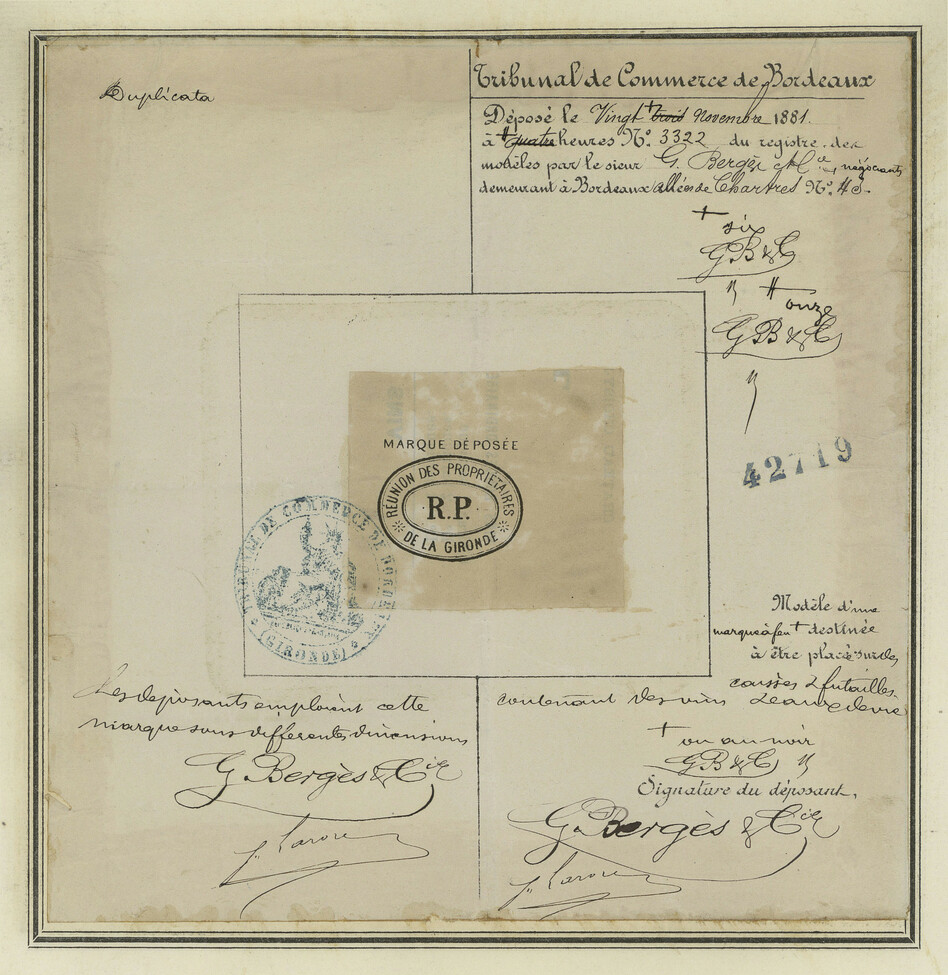 Duplicata
Tribunal de Commerce de Bordeaux
Déposé le Vingt + trois Novembre 1881.
à # quatre heures N° 3322 du registre des
modèles par le sieur G. Bergès & Cie, négociants
demeurant à Bordeaux allées de Chartres N° 43.
+ six
GB & C
# onze
GB & C
42719
MARQUE DÉPOSÉE
RÉUNION DES PROPRIÉTAIRES
R.P.
DE LA GIRONDE
TRIBUNAL DE COMMERCE DE BORDEAUX
(GIRONDE)
Modèle d'une
marque à feu + destinée
à être placé sur des
caisses & futailles
contenant des vins & eaux de vie
Les déposants emploient cette
marque sous différentes dimensions
+ ou au noir
GB & C
G. Bergès & Cie
Signature du déposant,
G. Bergès & Cie